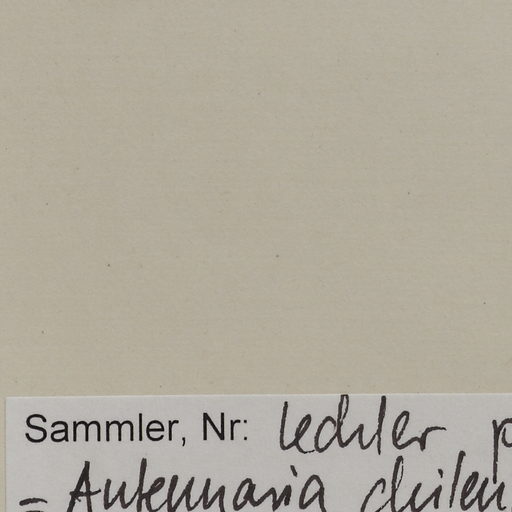 Sammler, Nr: Lechler
= Antennaria